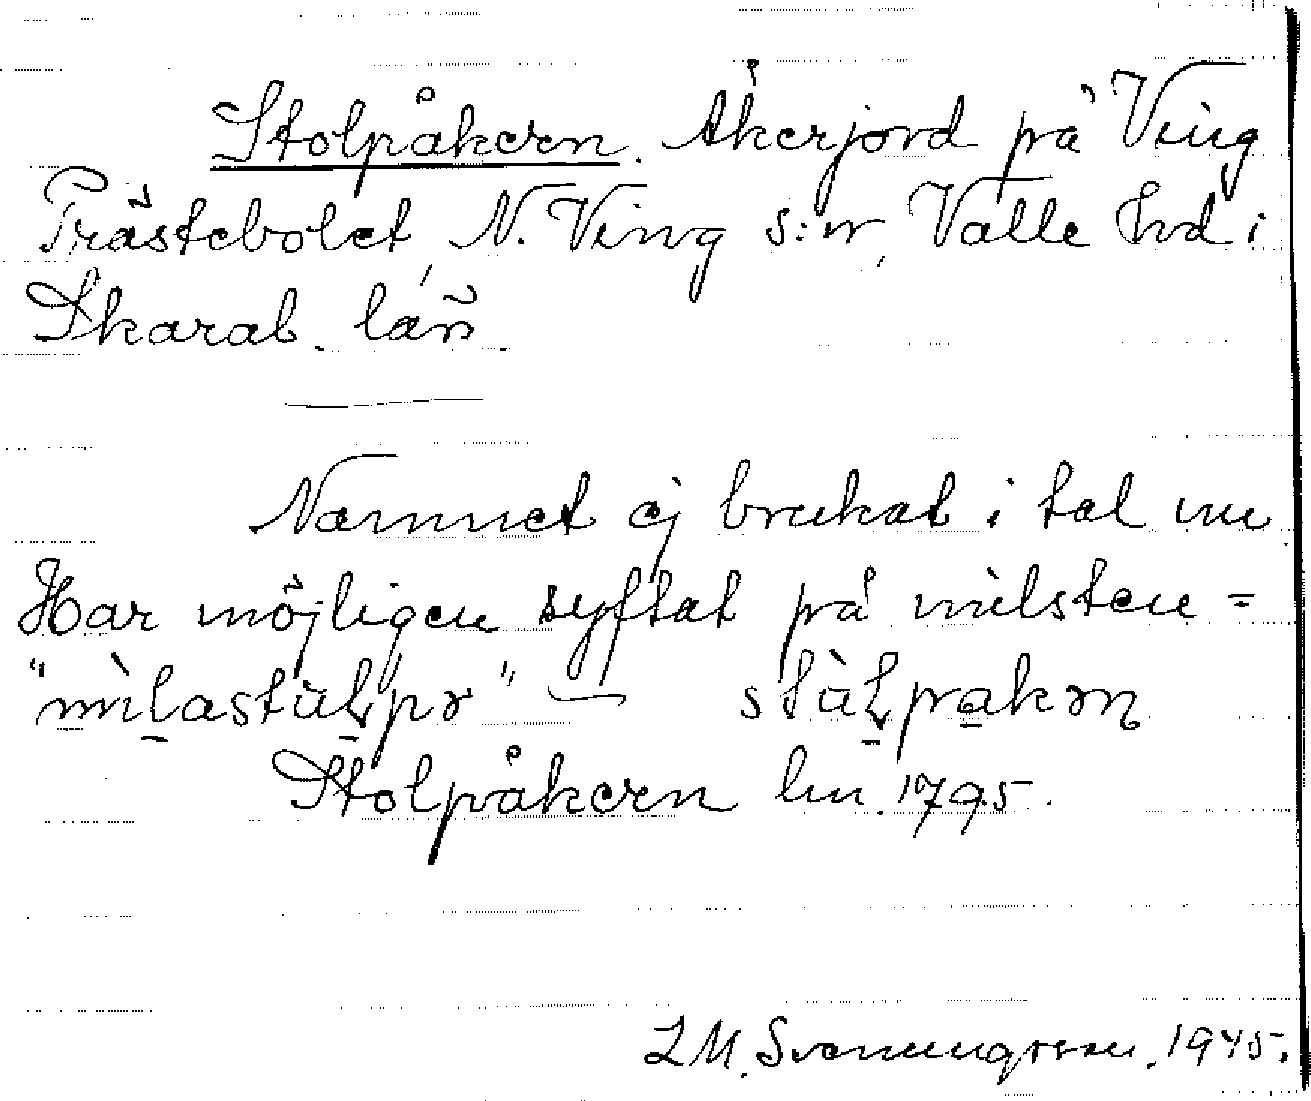 Stolpåkern. Åkerjord på Ving
Prästebolet, N. Ving s:n, Valle hd i
Skarab. län.
Namnet ej brukat i tal nu
Har möjligen syftat på milsten =
"mìlastùlpə" — stùlpakən
Stolpåkern lm. 1795.
L M. Svenungsson. 1945.